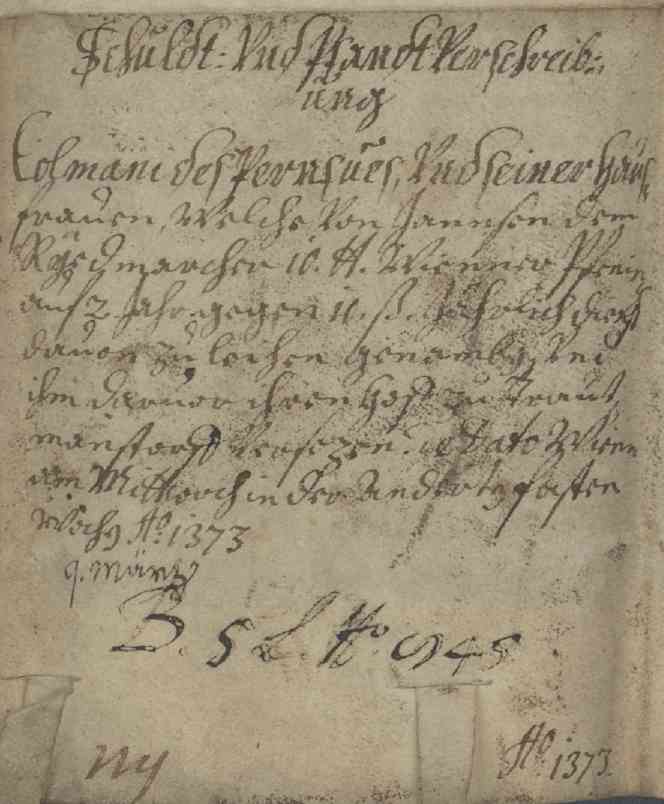 Schuldt: Vnd Pfandt Verschreib:
ung
Colmani des Pernsües, Vnd seiner Haus
frauen, Welche Von Jannsen dem
10. ℔. Wienner Pfenn
auf 2 Jahr gegen 11. ß. Jährlich dienst
dauon zu leihen genomben, Vnd
ihm daruor ihren Hof zu Traut
manstorff Versezen. de dato Wien
am Mittwoch in der andertn fasten
woch Aõ. 1373
9. März
B. 5 L. No. 945
Ny
Aõ 1373.